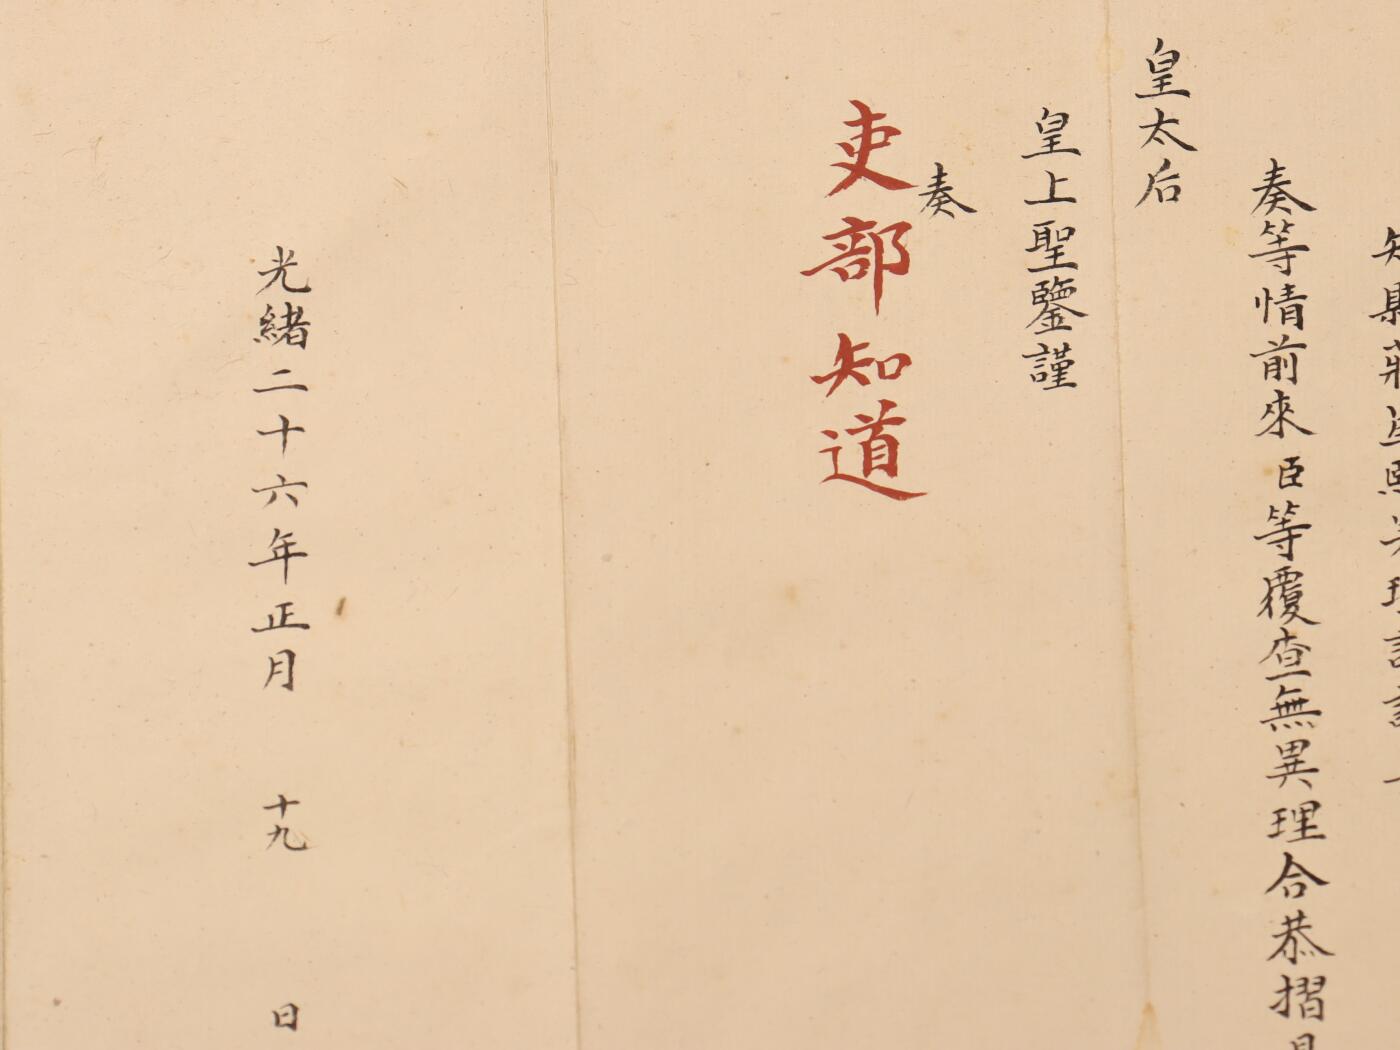 知縣莊
奏等情前來臣等覆查無異理合恭摺具
皇太后
皇上聖鑒謹
奏
吏部知道
光緒二十六年正月十九日